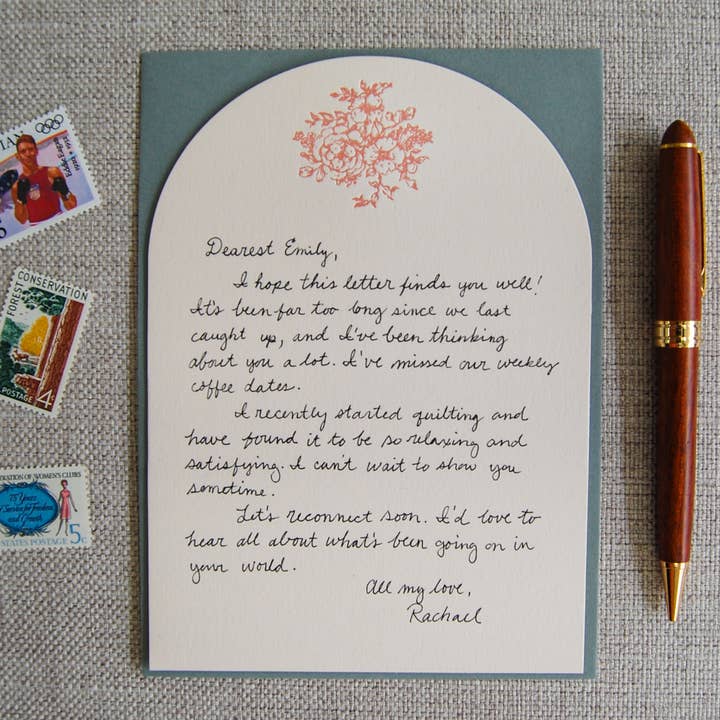 IAN
Eddie Eagan
1920 & 1932
FOREST CONSERVATION
POSTAGE 4¢
RATION OF WOMEN'S CLUBS
75 Years
Service for Freedom
and Growth
STATES POSTAGE 5¢
Dearest Emily,
I hope this letter finds you well!
It's been far too long since we last
caught up, and I've been thinking
about you a lot. I've missed our weekly
coffee dates.
I recently started quilting and
have found it to be so relaxing and
satisfying. I can't wait to show you
sometime.
Let's reconnect soon. I'd love to
hear all about what's been going on in
your world.
All my love,
Rachael